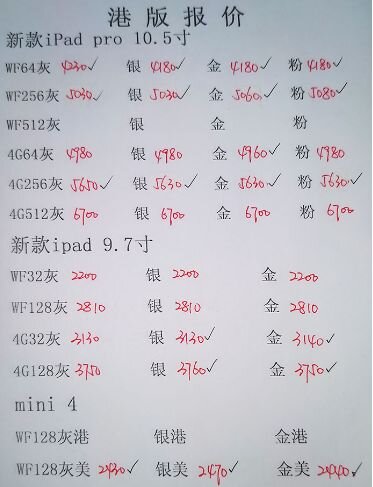 港版报价
新款iPad pro 10.5寸
WF64灰 4230✓ 银 4180✓ 金 4180✓ 粉 4180✓
WF256灰 5030✓ 银 5030✓ 金 5060✓ 粉 5080✓
WF512灰 银 金 粉
4G64灰 4980 银 4980 金 4960✓ 粉 4980
4G256灰 5650✓ 银 5630✓ 金 5630✓ 粉 5630✓
4G512灰 6700 银 6700 金 6700 粉 6700
新款ipad 9.7寸
WF32灰 2200 银 2200 金 2200
WF128灰 2810 银 2810 金 2810
4G32灰 3130 银 3130✓ 金 3140✓
4G128灰 3750 银 3760✓ 金 3750✓
mini 4
WF128灰港 银港 金港
WF128灰美 2430✓ 银美 2470✓ 金美 2440✓